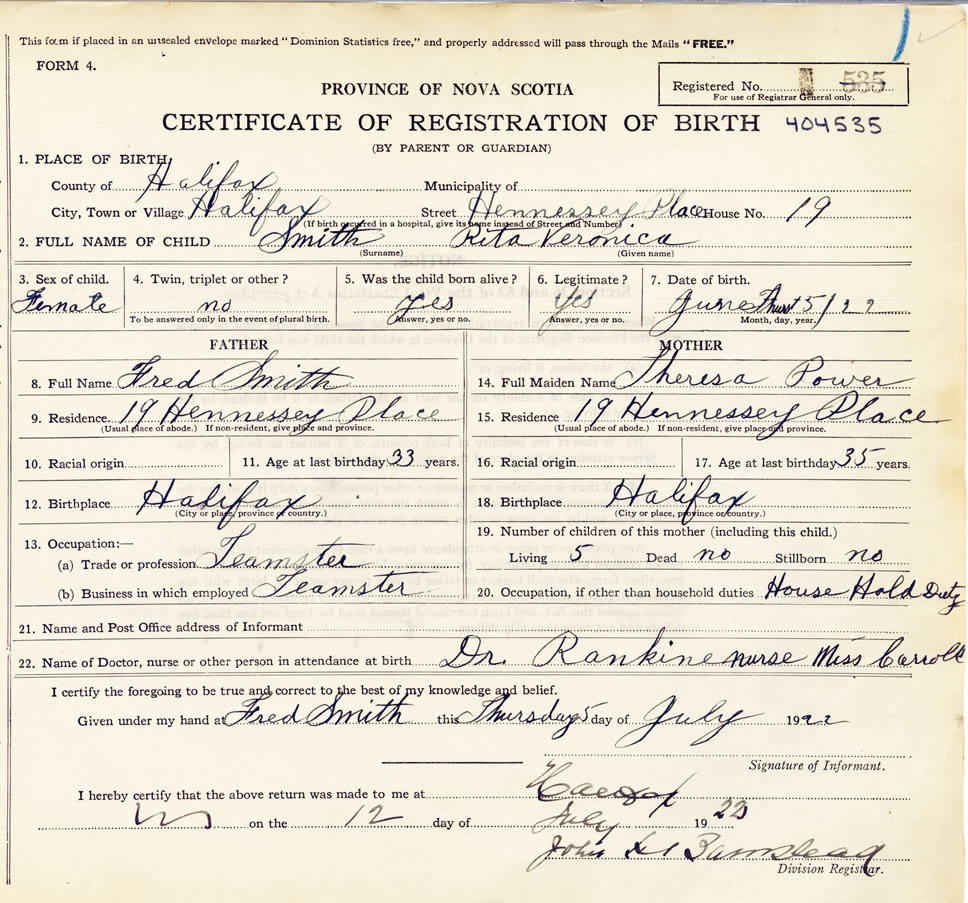 This form if placed in an unsealed envelope marked "Dominion Statistics free," and properly addressed will pass through the Mails "FREE."
FORM 4.
PROVINCE OF NOVA SCOTIA
Registered No. 535
For use of Registrar General only.
CERTIFICATE OF REGISTRATION OF BIRTH 404535
(BY PARENT OR GUARDIAN)
1. PLACE OF BIRTH,
County of Halifax Municipality of
City, Town or Village Halifax Street Hennessey Place House No. 19
(If birth occurred in a hospital, give its name instead of Street and Number)
2. FULL NAME OF CHILD Smith Rita Veronica
(Surname) (Given name)
3. Sex of child. 4. Twin, triplet or other? 5. Was the child born alive? 6. Legitimate? 7. Date of birth.
Female no yes Yes June Thurst 5/22
To be answered only in the event of plural birth. Answer, yes or no. Answer, yes or no. Month, day, year,
FATHER MOTHER
8. Full Name Fred Smith 14. Full Maiden Name Theresa Power
9. Residence. 19 Hennessey Place 15. Residence 19 Hennessey Place
(Usual place of abode.) If non-resident, give place and province. (Usual place of abode.) If non-resident, give place and province.
10. Racial origin 11. Age at last birthday 33 years. 16. Racial origin 17. Age at last birthday 35 years.
12. Birthplace Halifax 18. Birthplace Halifax
(City or place, province or country.) (City or place, province or country.)
13. Occupation:— 19. Number of children of this mother (including this child.)
(a) Trade or profession Teamster Living 5 Dead no Stillborn no
(b) Business in which employed Teamster 20. Occupation, if other than household duties House Hold Duty
21. Name and Post Office address of Informant
22. Name of Doctor, nurse or other person in attendance at birth Dr. Rankine nurse Miss Carroll
I certify the foregoing to be true and correct to the best of my knowledge and belief.
Given under my hand at Fred Smith this Thursday 5 day of July 1922
Signature of Informant.
I hereby certify that the above return was made to me at Halifax
on the 12 day of July 1922
John H Barnstead
Division Registrar.